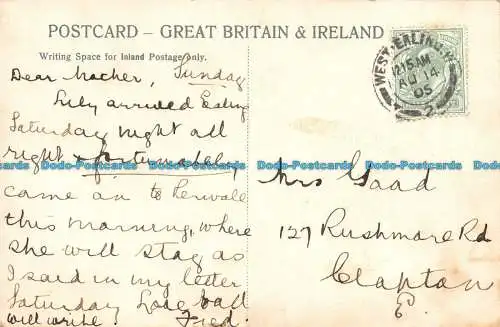 POSTCARD – GREAT BRITAIN & IRELAND
Writing Space for Inland Postage only.
Dear Mother, Sunday
Lily arrived Ealing
Saturday night all
right & fortunately
came on to Perivale
this morning, where
she will stay as
I said in my letter
Saturday Love to all
will write Fred.
WEST-EALING
12.15AM
AU 14
05
2
Mrs Goad
127 Rushmore Rd
Clapton
E.
Dodo-Postcards Dodo-Postcards Dodo-Postcards Dodo-Postcards Dodo-Postcards